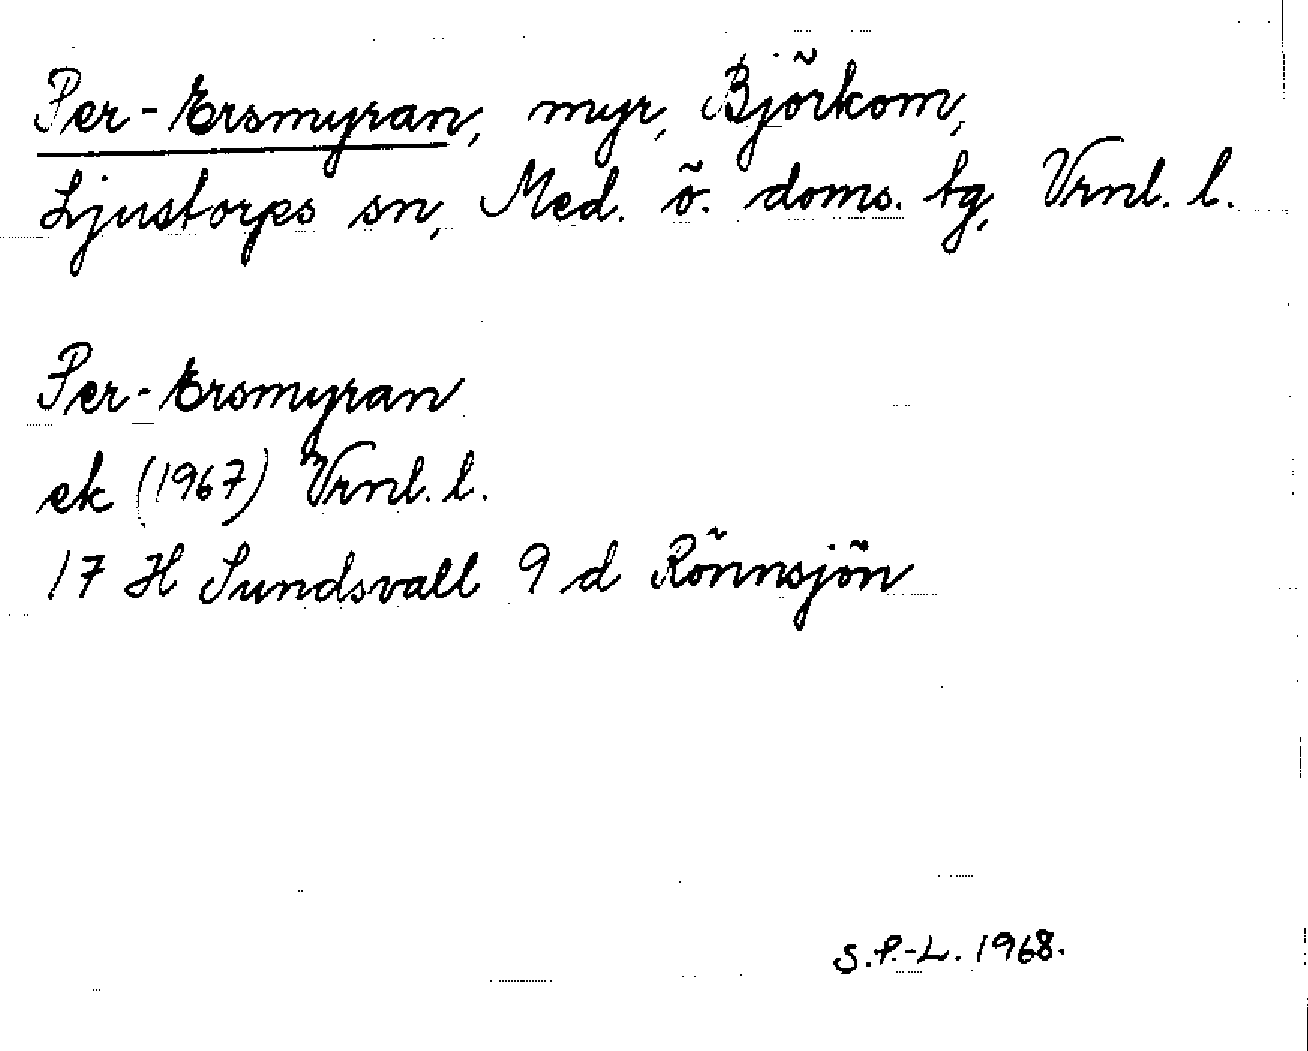 Per-Ersmyran, myr, Björkom,
Ljustorps sn, Med. ö. doms. tg, Vrnl. l.
Per-Ersmyran
ek (1967) Vrnl. l.
17 H Sundsvall 9 d Rönnsjön
S.P.-L. 1968.